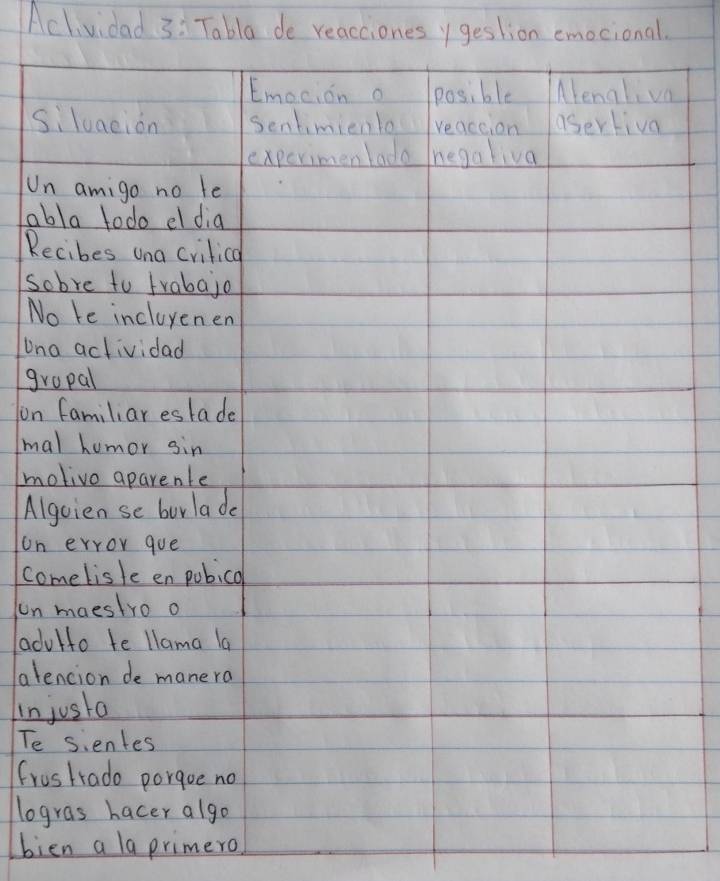 Actividad 3: Tabla de reacciones y gestion emocional.
Situación
Emoción o
sentimiento
experimentado
posible
reaccion
negativa
Atenativa
asertiva
Un amigo no te
abla todo el dia
Recibes una critica
sobre tu trabajo
No te incluyen en
una actividad
grupal
un familiar esta de
mal humor sin
motivo aparente
Alguien se burla de
un error que
cometiste en pubico
un maestro o
adulto te llama la
atencion de manera
injusta
Te sientes
frustrado porque no
logras hacer algo
bien a la primero